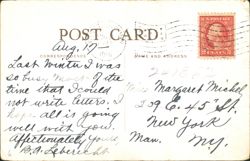 POST CARD
Aug. 17—
NAME AND ADDRESS
Last Winter I was
so busy most of the
time that I could
not write letters. I
hope all is going
well with you.
Affectionately yours
Miss Margaret Michel
339 E. 45" St.
New York
Man. NY.